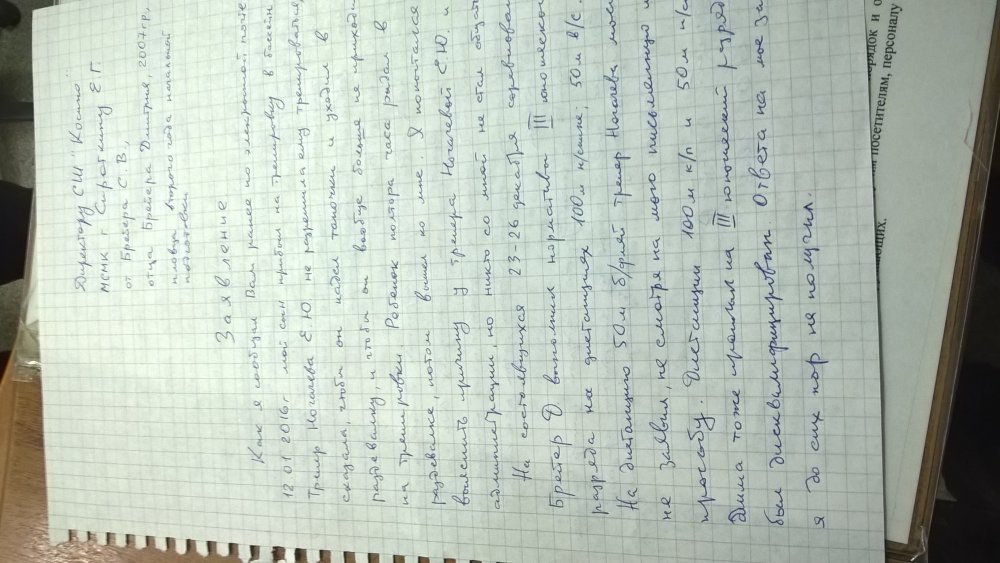 Директору СШ "Косино"
МСМК г. Сироткину Е.Г.
от Брейера С.В.,
отца Брейера Дмитрия, 2007 г.р.,
пловца второго года начальной
подготовки
Заявление
Как я сообщал Вам ранее по электронной почте
12 01 2016г мой сын прибыл на тренировку в бассейн
Тренер Ногачева Е.Ю. не разрешила ему тренироваться
сказала, чтобы он надел тапочки и уходил в
раздевалку, и чтобы он вообще больше не приходил
на тренировки. Ребенок полтора часа рыдал в
раздевалке, потом вышел ко мне. Я попытался
выяснить причину у тренера Ногачевой Е.Ю. и
администрации, но никто со мной не стал общаться
На состоявшихся 23-26 декабря соревнованиях
Брейер Д выполнил нормативы III юношеского
разряда на дистанциях 100м н/спине; 50м в/с.
На дистанцию 50м б/дельф тренер Ногачева моего
не заявил, не смотря на мою письменную
просьбу. Дистанции 100м к/п и 50м н/с
Дима тоже проплыл на III юношеский разряд
был дисквалифицирован. Ответа на мое за
я до сих пор не получил.
порядок и
посетителям, персоналу
ающих.